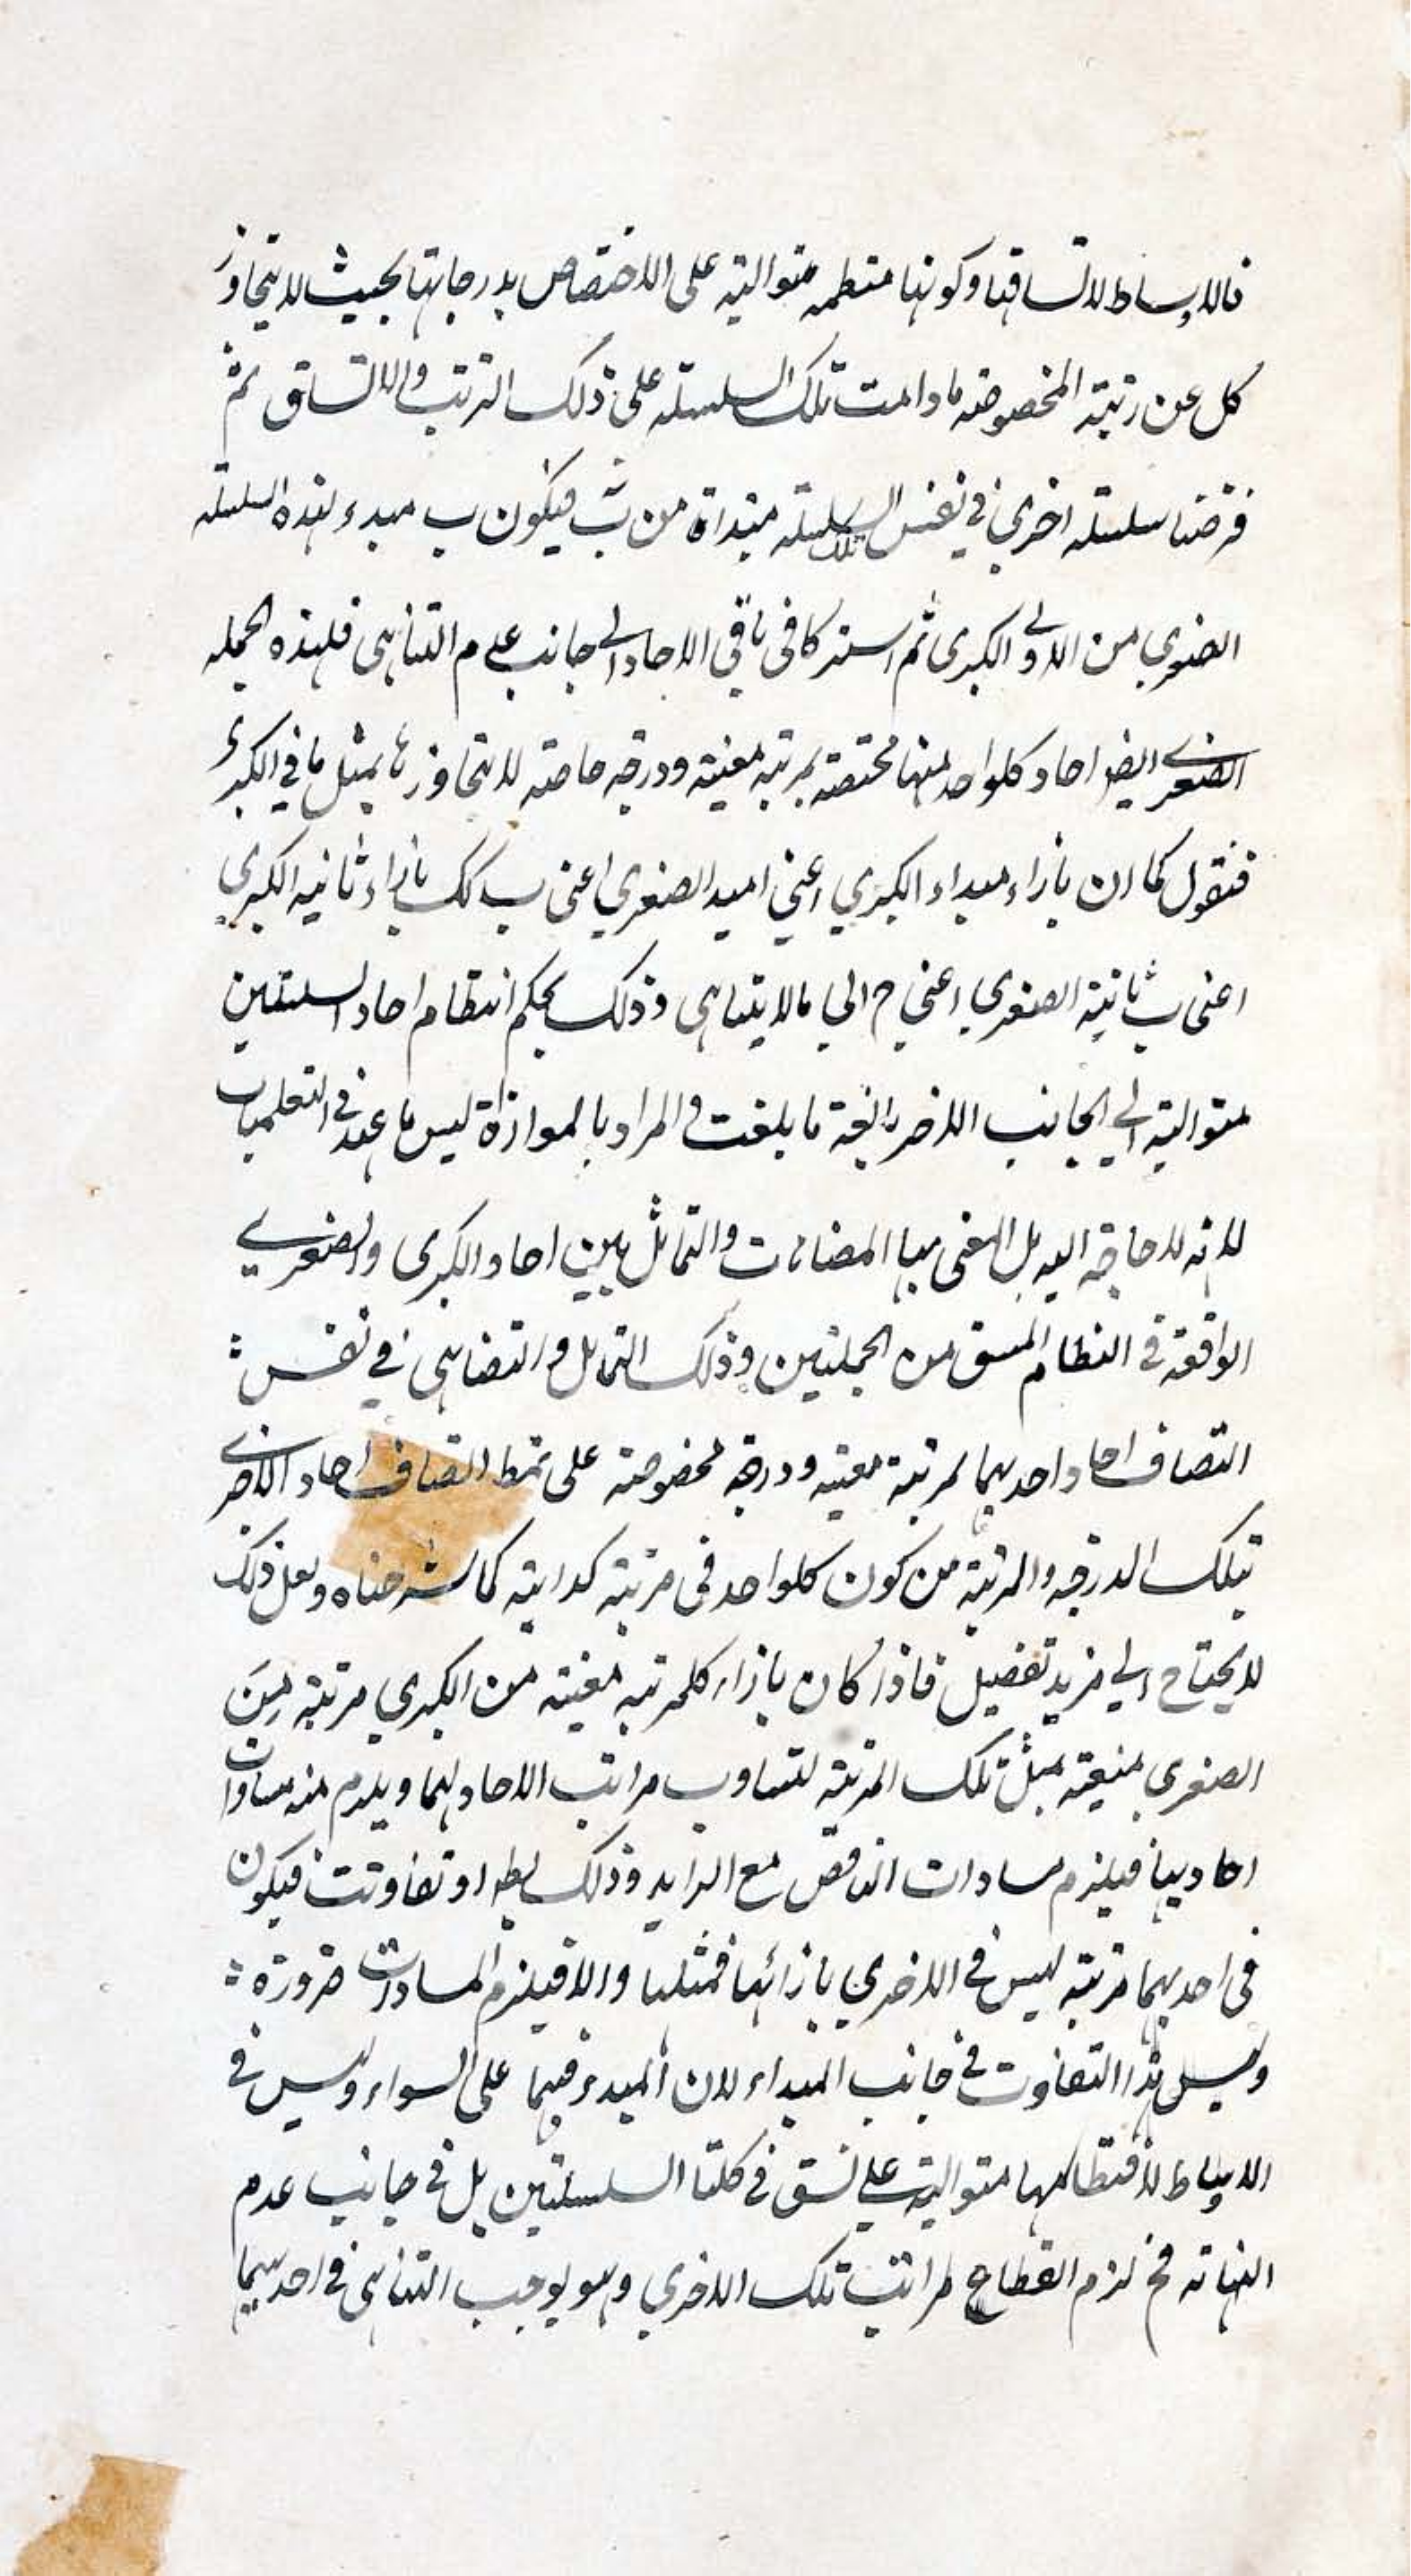 فالاوساط لاتساقها وكونها منتظمه متواليه على الاختصاص بدرجاتها بحيث لا يتجاوز
كل عن رتبته المخصوصه مادامت تلك السلسله على ذلك الترتب والاتساق ثم
فرضنا سلسله اخرى في نفس تلك السلسله مبتداة من ب فيكون ب مبدء لهذه السلسله
الصغرى من الاولى الكبرى ثم استركا فى باقي الاحاد الى جانب عدم التناهى فلهذه الجمله
الصغرى ايضا احاد كلواحد منها مختصه بمرتبه معينه ودرجه خاصه لا يتجاوزها بمثل ما في الكبرى
فنقول كما ان بازاء مبداء الكبرى اعني ا مبدا الصغرى اعنى ب كك بازاء ثانيه الكبرى
اعنى ب ثانية الصغرى اعني ج الي مالا يتناهى وذلك بحكم انتظام احاد السلسلتين
متواليه الى الجانب الاخر بالغة ما بلغت والمراد بالموازاة ليس ما عهد في التعلميات
لانه لا حاجه اليه بل المعنى بها المضاهات والتماثل بين احاد الكبرى والصغرى
الواقعة في النظام المتسق من الجملتين وذلك التماثل والتضاهى في نفس
اتصاف احاد احديهما لمرتبة معينه ودرجة مخصوصه على نمط اتصاف احاد الاخرى
بتلك الدرجه والمرتبة من كون كلواحد فى مرتبته كدايته كما شرحناه ولعل ذلك
لا يحتاج الي مزيد تفصيل فاذا كان بازاء كلمرتبه معينه من الكبرى مرتبة من
الصغرى منيعته بمثل تلك المرتبه لتساوت مراتب الاحاد لهما ويلزم منه مساوات
احاديها فيلزم مساوات الناقص مع الزايد وذلك بط او تفاوتت فيكون
فى احديهما مرتبته ليس في الاخرى بازائها فمثلها والا فيلزم المساوات ضرورة
وليس هذا التفاوت في جانب المبداء لان المبدء فيهما على السواء وليس في
الاوساط لانتظامها متواليه على نسق في كلتا السلسلتين بل في جانب عدم
النهاته فح لزم انقطاع مراتب تلك الاخرى وهو يوجب التناهى في احديهما